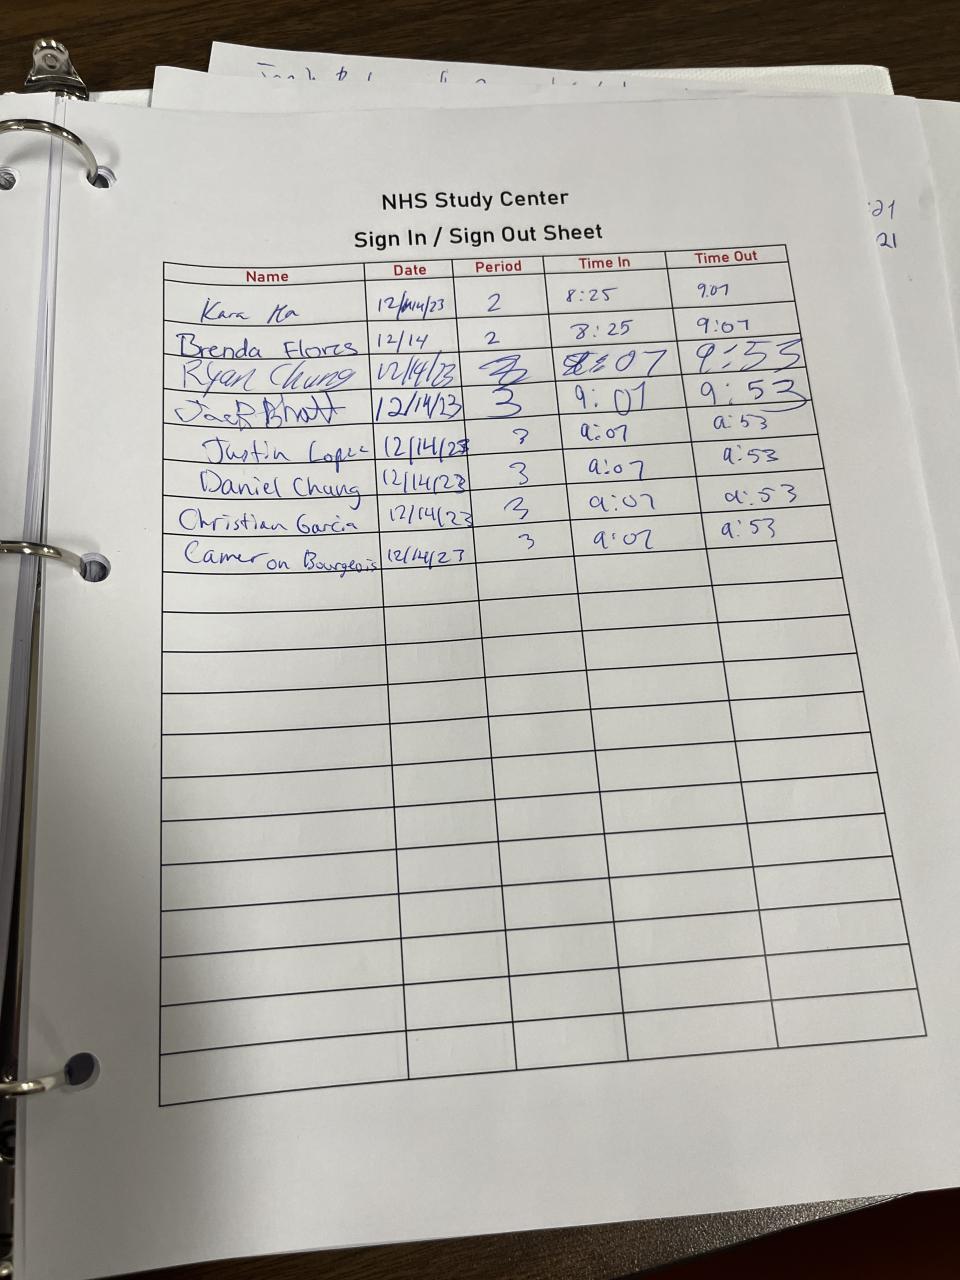 :21
21
NHS Study Center
Sign In / Sign Out Sheet
Name Date Period Time In Time Out
Kara Ma 12/14/23 2 8:25 9:07
Brenda Flores 12/14 2 8:25 9:07
Ryan Chung 12/14/23 3 9:07 9:53
Bhatt 12/14/23 3 9:07 9:53
Justin Lopez 12/14/23 3 9:07 9:53
Daniel Chung 12/14/23 3 9:07 9:53
Christian Garcia 12/14/23 3 9:07 9:53
Cameron Bourgeois 12/14/23 3 9:07 9:53